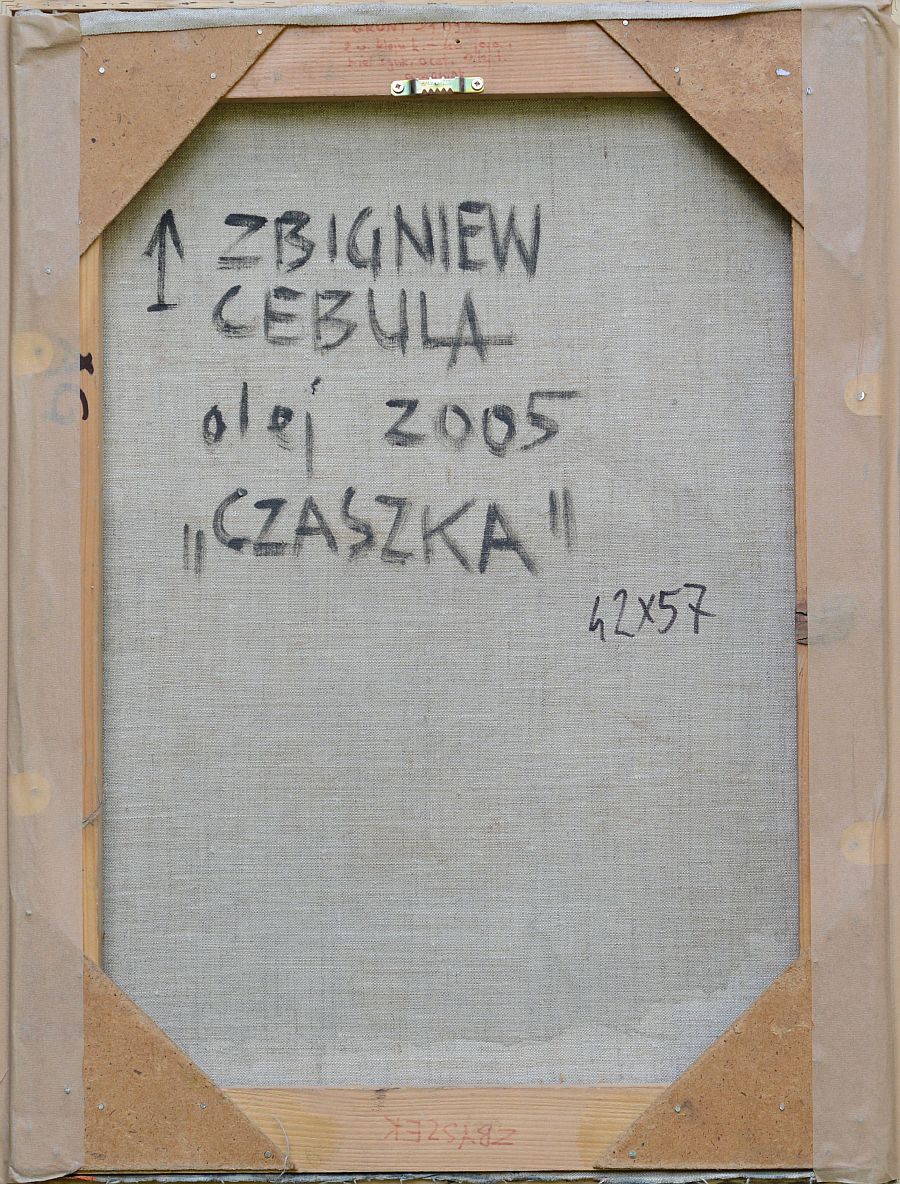 GRUNT
↑ ZBIGNIEW
CEBULA
olej 2005
„CZASZKA"
42x57
ZBYSZEK